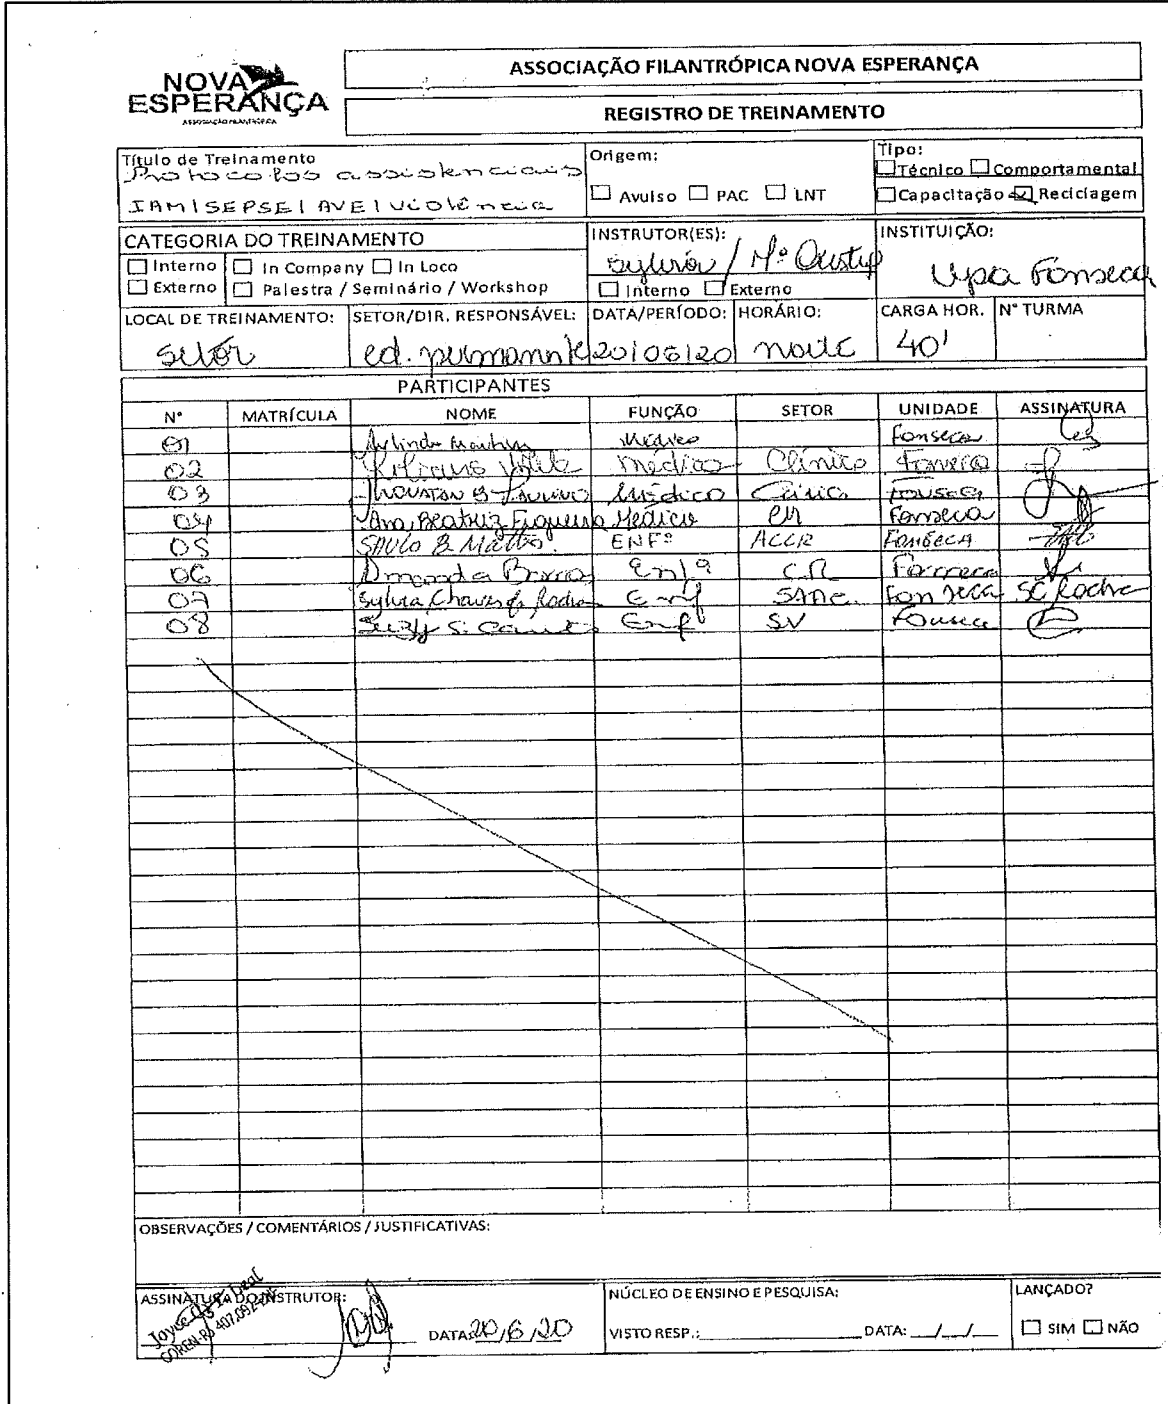 NOVA
ESPERANÇA
ASSOCIAÇÃO FILANTRÓPICA
ASSOCIAÇÃO FILANTRÓPICA NOVA ESPERANÇA
REGISTRO DE TREINAMENTO
Título de Treinamento
Protocolos assistenciais
IAM|SEPSE|AVE|Violência
Origem:
☐ Avulso ☐ PAC ☐ LNT
Tipo:
☐ Técnico ☐ Comportamental
☐ Capacitação ☑ Reciclagem
CATEGORIA DO TREINAMENTO
☐ Interno ☐ In Company ☐ In Loco
☐ Externo ☐ Palestra / Seminário / Workshop
INSTRUTOR(ES):
Sylvia / Mª
☐ Interno ☐ Externo
INSTITUIÇÃO:
Upa Fonseca
LOCAL DE TREINAMENTO:
setor
SETOR/DIR. RESPONSÁVEL:
ed. permanente
DATA/PERÍODO:
20/06/20
HORÁRIO:
noite
CARGA HOR.
40'
N° TURMA
PARTICIPANTES
N° MATRÍCULA NOME FUNÇÃO SETOR UNIDADE ASSINATURA
01 Arlindo Martins Médico Fonseca
02 Médico Clínico Fonseca
03 Médico Fonseca
04 Ana Beatriz Figueira Médico Fonseca
05 SAULO B. Mattos ENFº ACCR FONSECA
06 Amanda Barros Enfª C.R Fonseca
07 Sylvia Chaves da Rocha Enf Fonseca SC Rocha
08 Suzy S. Enf SV Fonseca
OBSERVAÇÕES / COMENTÁRIOS / JUSTIFICATIVAS:
ASSINATURA DO INSTRUTOR:
COREN-RJ 407.092-ENF
DATA: 20/6/20
NÚCLEO DE ENSINO E PESQUISA:
VISTO RESP.: DATA: __/__/__
LANÇADO?
☐ SIM ☐ NÃO